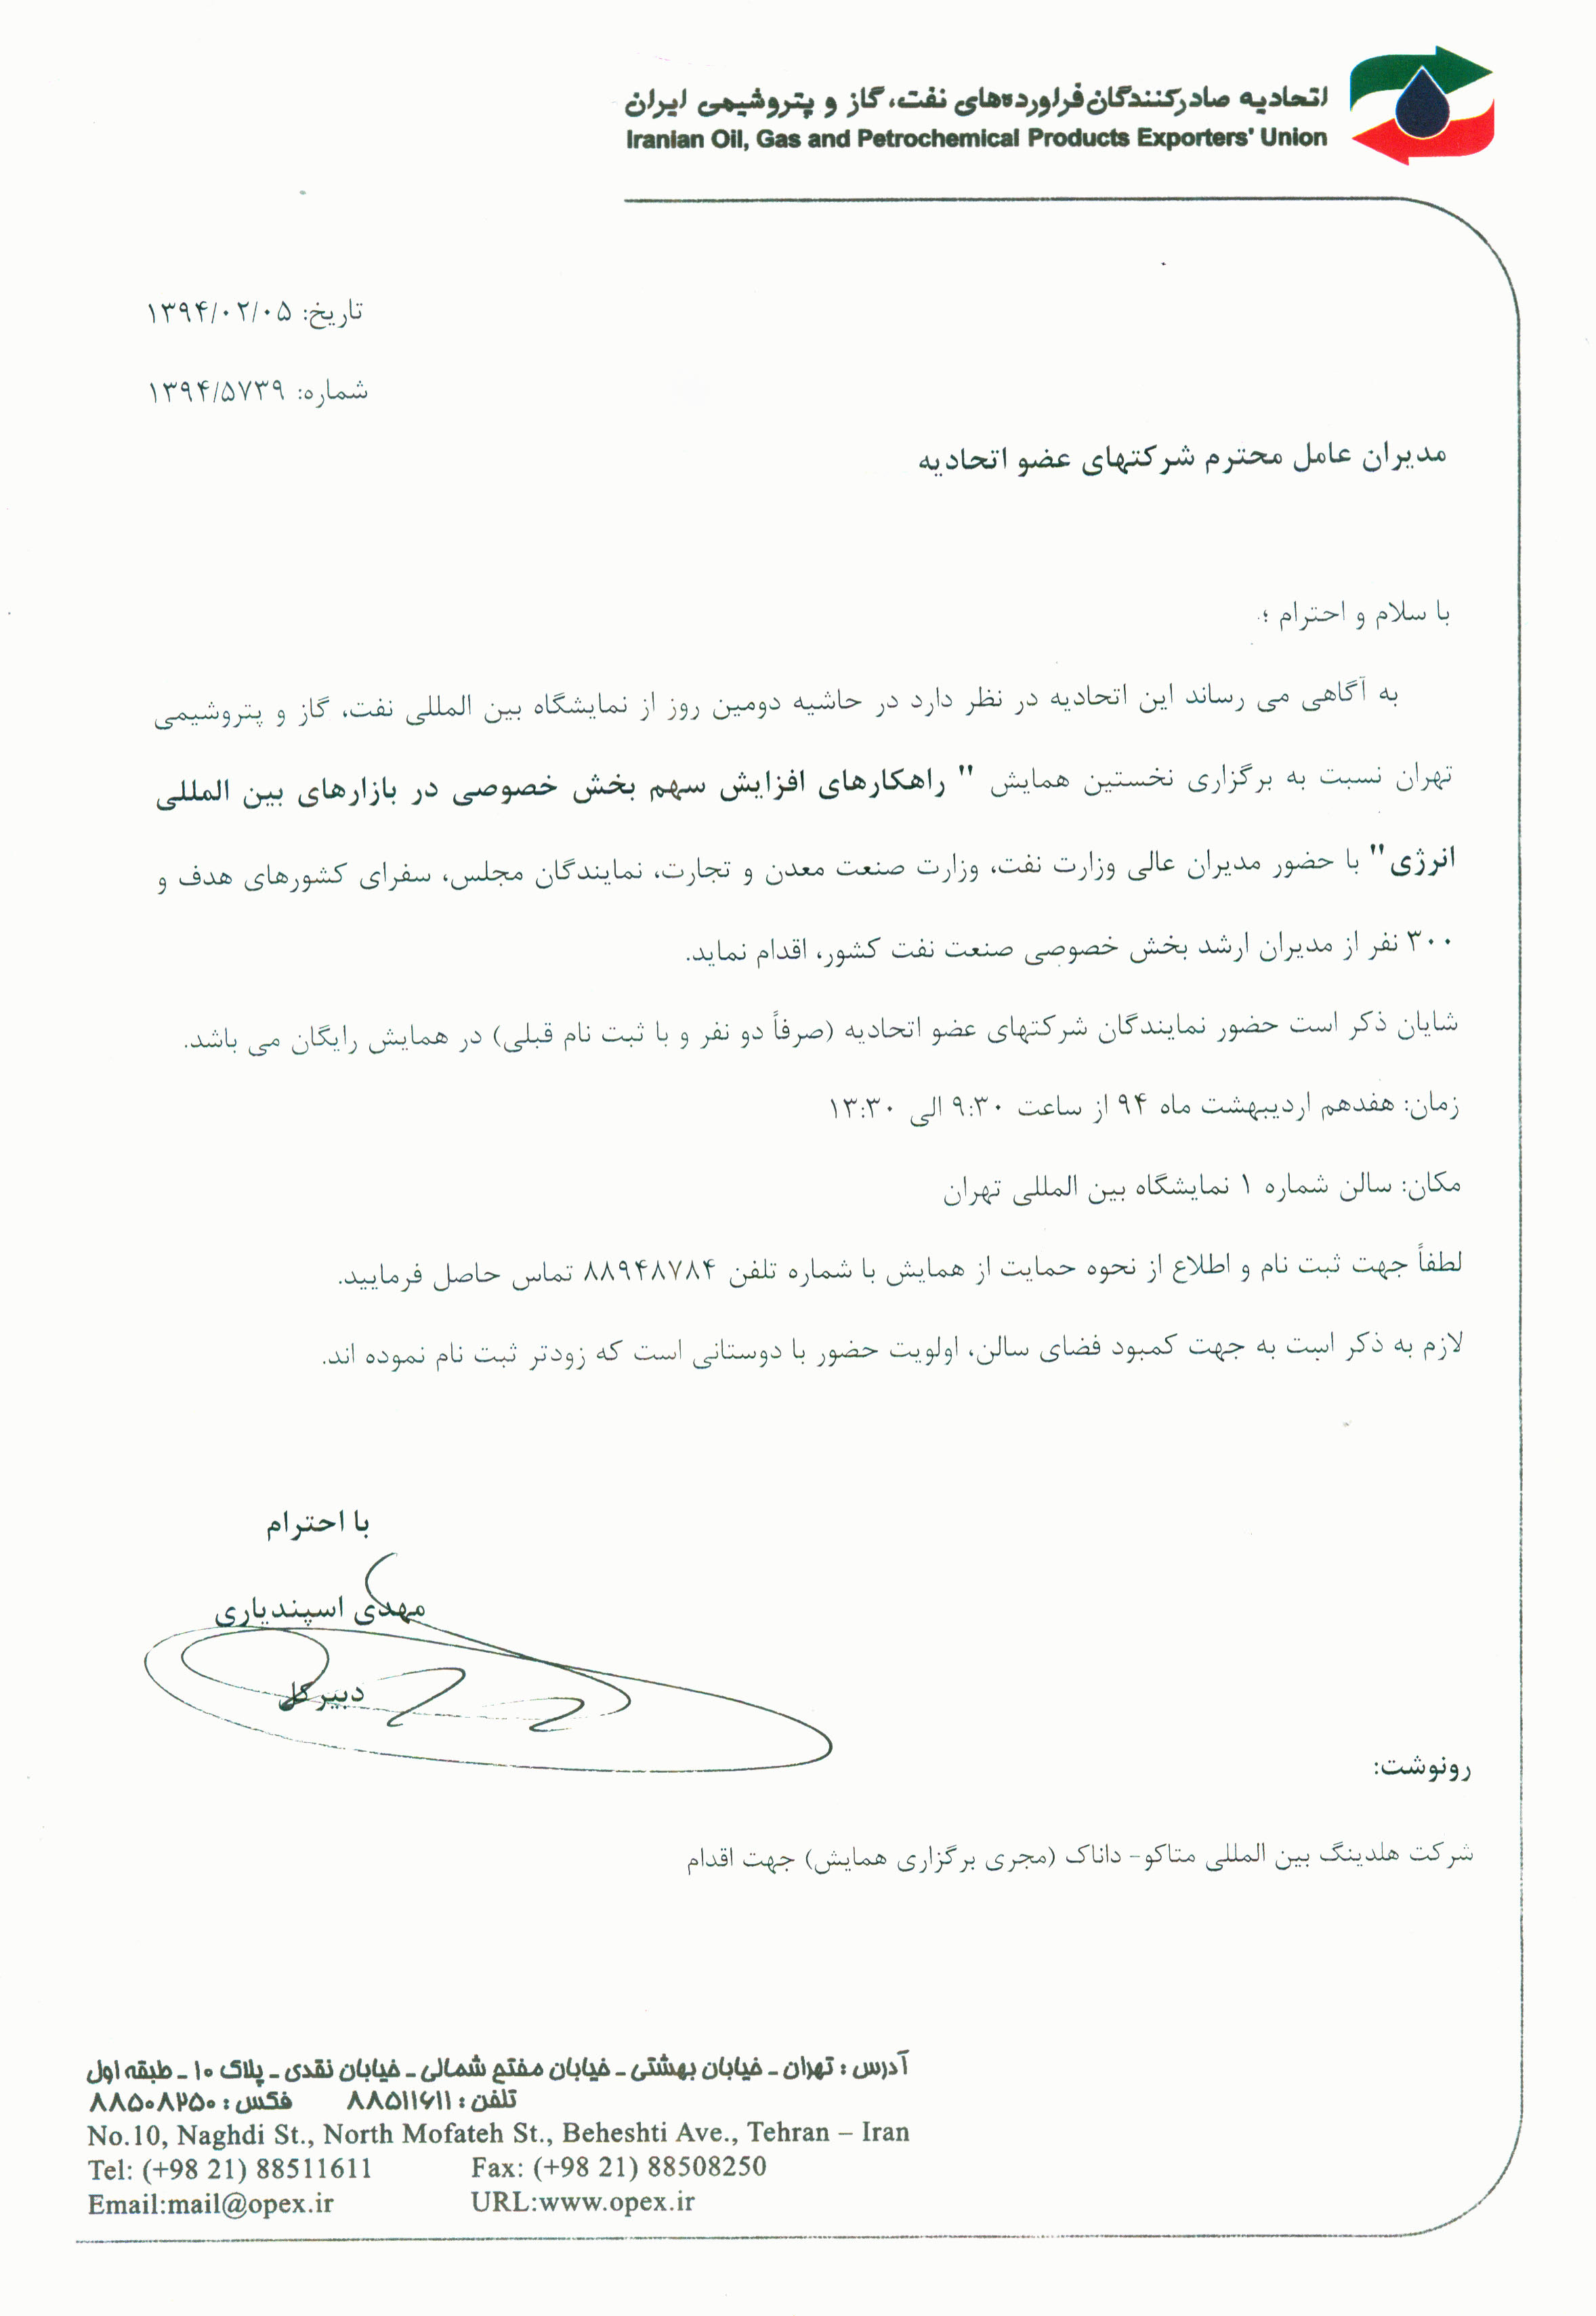 اتحادیه صادرکنندگان فراورده‌های نفت، گاز و پتروشیمی ایران
Iranian Oil, Gas and Petrochemical Products Exporters' Union
تاریخ: ۱۳۹۴/۰۲/۰۵
شماره: ۱۳۹۴/۵۷۳۹
مدیران عامل محترم شرکتهای عضو اتحادیه
با سلام و احترام ؛
به آگاهی می رساند این اتحادیه در نظر دارد در حاشیه دومین روز از نمایشگاه بین المللی نفت، گاز و پتروشیمی
تهران نسبت به برگزاری نخستین همایش " راهکارهای افزایش سهم بخش خصوصی در بازارهای بین المللی
انرژی" با حضور مدیران عالی وزارت نفت، وزارت صنعت معدن و تجارت، نمایندگان مجلس، سفرای کشورهای هدف و
۳۰۰ نفر از مدیران ارشد بخش خصوصی صنعت نفت کشور، اقدام نماید.
شایان ذکر است حضور نمایندگان شرکتهای عضو اتحادیه (صرفاً دو نفر و با ثبت نام قبلی) در همایش رایگان می باشد.
زمان: هفدهم اردیبهشت ماه ۹۴ از ساعت ۹:۳۰ الی ۱۳:۳۰
مکان: سالن شماره ۱ نمایشگاه بین المللی تهران
لطفاً جهت ثبت نام و اطلاع از نحوه حمایت از همایش با شماره تلفن ۸۸۹۴۸۷۸۴ تماس حاصل فرمایید.
لازم به ذکر است به جهت کمبود فضای سالن، اولویت حضور با دوستانی است که زودتر ثبت نام نموده اند.
با احترام
مهدی اسپندیاری
دبیرکل
رونوشت:
شرکت هلدینگ بین المللی متاکو- داناک (مجری برگزاری همایش) جهت اقدام
آدرس : تهران ـ خیابان بهشتی ـ خیابان مفتح شمالی ـ خیابان نقدی ـ پلاک ۱۰ ـ طبقه اول
تلفن : ۸۸۵۱۱۶۱۱ فکس : ۸۸۵۰۸۲۵۰
No.10, Naghdi St., North Mofateh St., Beheshti Ave., Tehran – Iran
Tel: (+98 21) 88511611 Fax: (+98 21) 88508250
Email:mail@opex.ir URL:www.opex.ir